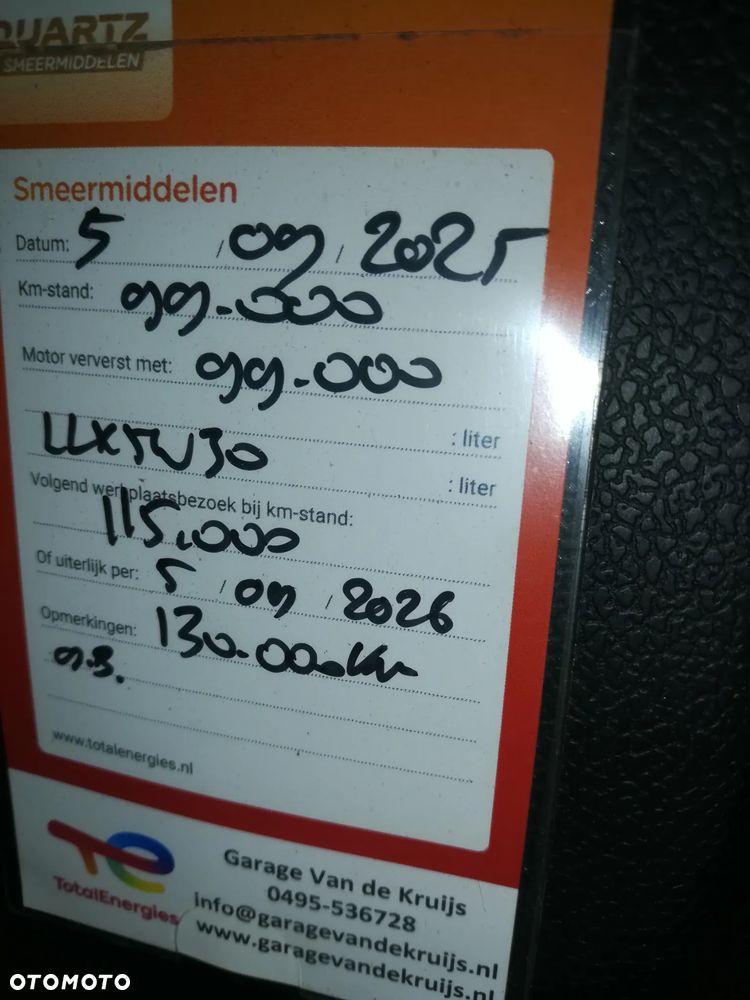 QUARTZ
SMEERMIDDELEN
Smeermiddelen
Datum: 5 / 09 / 2025
Km-stand: 99.000
Motor ververst met: 99.000
: liter
LLX5W30
: liter
Volgend werkplaatsbezoek bij km-stand:
115.000
Of uiterlijk per: 5 / 09 / 2026
Opmerkingen: 130.000km
www.totalenergies.nl
TotalEnergies
Garage Van de Kruijs
0495-536728
info@garagevandekruijs.nl
www.garagevandekruijs.nl
OTOMOTO